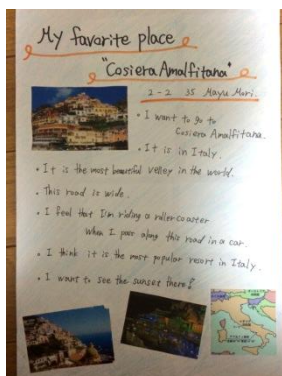 My favorite place
"Cosiera Amalfitana"
2-2 35 Mayu Mori.
· I want to go to
Cosiera Amalfitana.
· It is in Italy.
· It is the most beautiful Velley in the world.
· This road is wide.
· I feel that I'm riding a roller coaster
when I pass along this road in a car.
· I think it is the most popular resort in Italy.
· I want to see the sunset there!